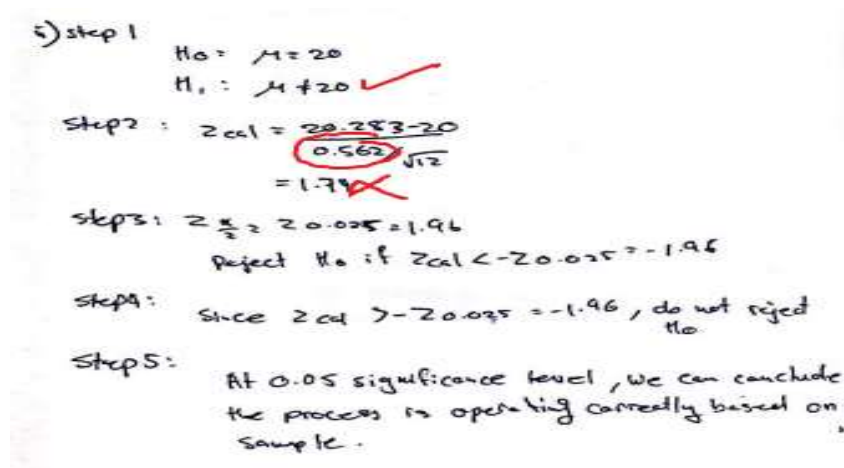 i) step 1
H0: μ = 20
H1: μ ≠ 20
Step2: Zcal = 20.283-20
0.562/√12
= 1.74
Step3: Z α/2 = Z0.025 = 1.96
Reject H0 if Zcal < -Z0.025 = -1.96
Step4:
Since Zcal > -Z0.025 = -1.96, do not reject
H0
Step5:
At 0.05 significance level, we can conclude
the process is operating correctly based on
sample.